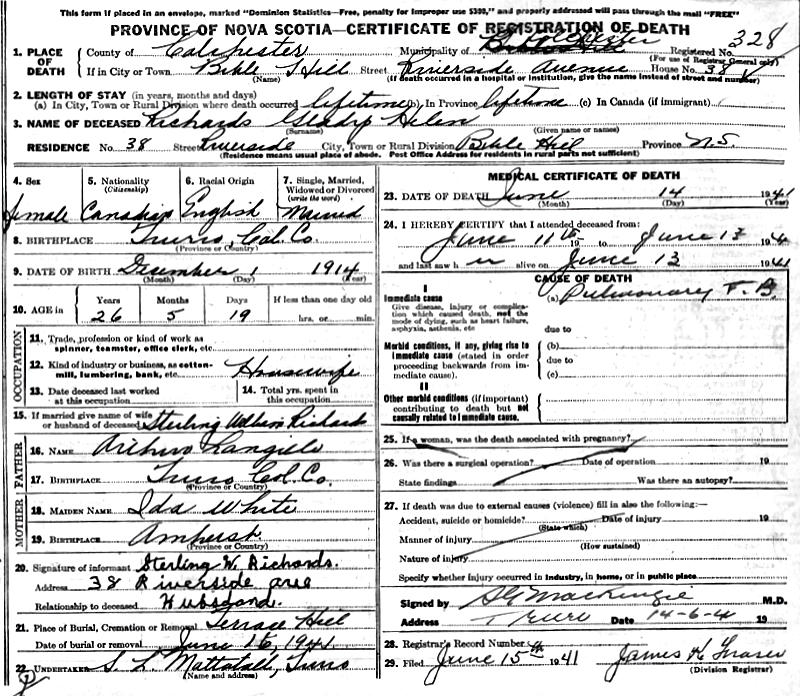 This form if placed in an envelope, marked "Dominion Statistics—Free, penalty for improper use $300," and properly addressed will pass through the mail "FREE"
PROVINCE OF NOVA SCOTIA—CERTIFICATE OF REGISTRATION OF DEATH
1. PLACE OF DEATH County of Colchester Municipality of Colchester Registered No. 328
(For use of Registrar General only)
If in City or Town Bible Hill Street Riverside Avenue House No. 38
(Name) (If death occurred in a hospital or institution, give the name instead of street and number)
2. LENGTH OF STAY (in years, months and days)
(a) In City, Town or Rural Division where death occurred lifetime (b). In Province lifetime (c) In Canada (if immigrant)
3. NAME OF DECEASED Richards Gladys Helen
(Surname) (Given name or names)
RESIDENCE No. 38 Street Riverside City, Town or Rural Division Bible Hill Province N.S.
(Residence means usual place of abode. Post Office Address for residents in rural parts not sufficient)
4. Sex 5. Nationality (Citizenship) 6. Racial Origin 7. Single, Married, Widowed or Divorced (write the word)
female Canadian English Married
8. BIRTHPLACE Truro, Col. Co.
(Province or Country)
9. DATE OF BIRTH December 1 1914
(Month) (Day) (Year)
10. AGE in Years Months Days If less than one day old
26 5 19 hrs. or min.
OCCUPATION
11. Trade, profession or kind of work as spinner, teamster, office clerk, etc.
12. Kind of industry or business, as cotton-mill, lumbering, bank, etc. Housewife
13. Date deceased last worked at this occupation 14. Total yrs. spent in this occupation
15. If married give name of wife or husband of deceased Sterling William Richards
FATHER
16. NAME Arthur Langille
17. BIRTHPLACE Truro Col. Co.
(Province or Country)
MOTHER
18. MAIDEN NAME Ida White
19. BIRTHPLACE Amherst
(Province or Country)
20. Signature of informant Sterling W. Richards.
Address 38 Riverside ave
Relationship to deceased Husband.
21. Place of Burial, Cremation or Removal Terrace Hill
Date of burial or removal June 16, 1941
22. UNDERTAKER S. L. Mattatall, Truro
(Name and address)
MEDICAL CERTIFICATE OF DEATH
23. DATE OF DEATH June 14 1941
(Month) (Day) (Year)
24. I HEREBY CERTIFY that I attended deceased from:
June 11th 19 to June 13 194
and last saw h er alive on June 13 1941
CAUSE OF DEATH
I
Immediate cause (a) Pulmonary T. B.
Give disease, injury or complication which caused death, not the mode of dying, such as heart failure, asphyxia, asthenia, etc
due to
Morbid conditions, if any, giving rise to immediate cause (stated in order proceeding backwards from immediate cause).
(b)
due to
(c)
II
Other morbid conditions (if important) contributing to death but not causally related to immediate cause.
25. If a woman, was the death associated with pregnancy?
26. Was there a surgical operation? Date of operation 19
State findings Was there an autopsy?
27. If death was due to external causes (violence) fill in also the following:—
Accident, suicide or homicide? Date of injury 19
(State which)
Manner of injury
(How sustained)
Nature of injury
Specify whether injury occurred in industry, in home, or in public place
Signed by S G MacKenzie M.D.
Address Truro Date 14-6-4 19
28. Registrar's Record Number
29. Filed June 15th 1941 James K Fraser
(Division Registrar)